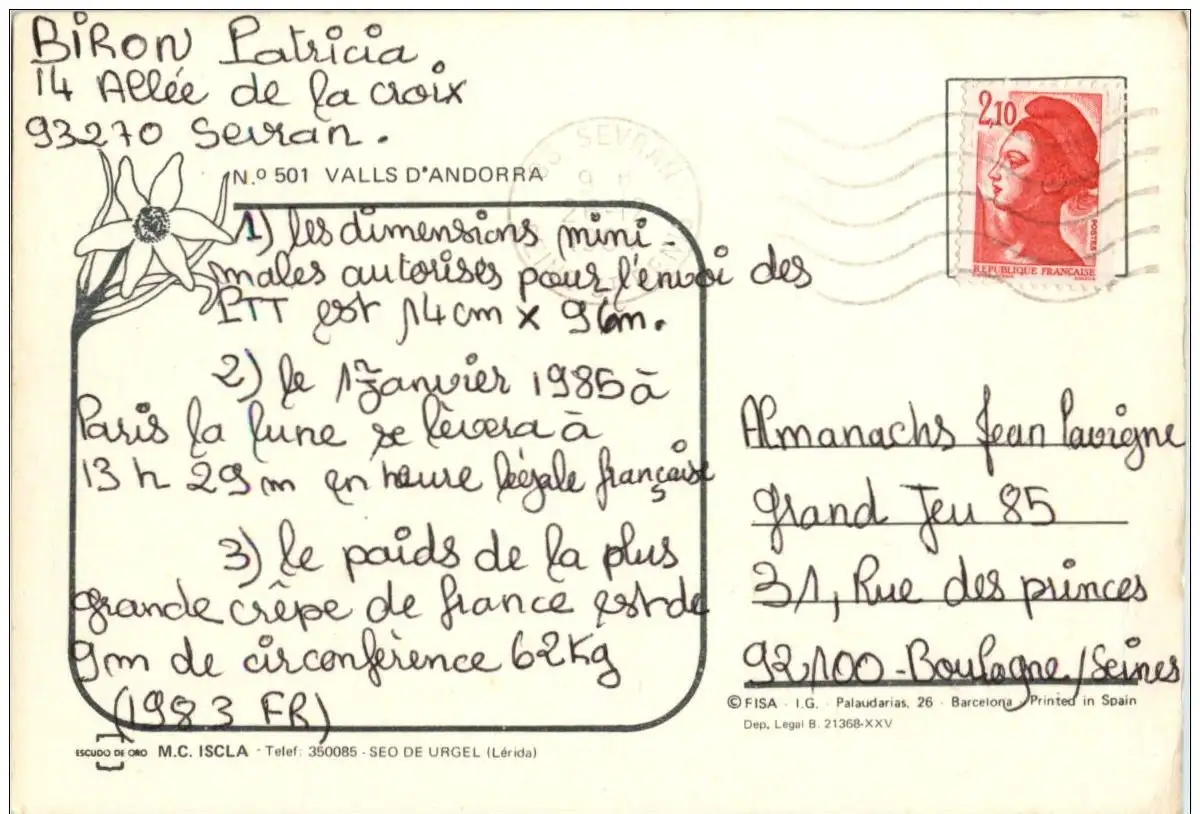 BIRON Patricia
14 Allée de la croix
93270 Sevran.
N.º 501 VALLS D'ANDORRA
1) les dimensions mini-
males autorisés pour l'envoi des
PTT est 14cm x 9cm.
2) le 1er Janvier 1985 à
Paris la lune se lèvera à
13 h 29m en heure légale française
3) le poids de la plus
grande crêpe de france est de
9m de circonférence 62Kg
(1983 FR)
ESCUDO DE ORO M.C. ISCLA - Telef: 350085 - SEO DE URGEL (Lérida)
SEVRAN
2,10
POSTES
REPUBLIQUE FRANÇAISE
Almanachs Jean Lavigne
grand Jeu 85
31, Rue des princes
92100 - Boulogne / Seines
© FISA - I.G. - Palaudarias, 26 - Barcelona - Printed in Spain
Dep. Legal B. 21368-XXV